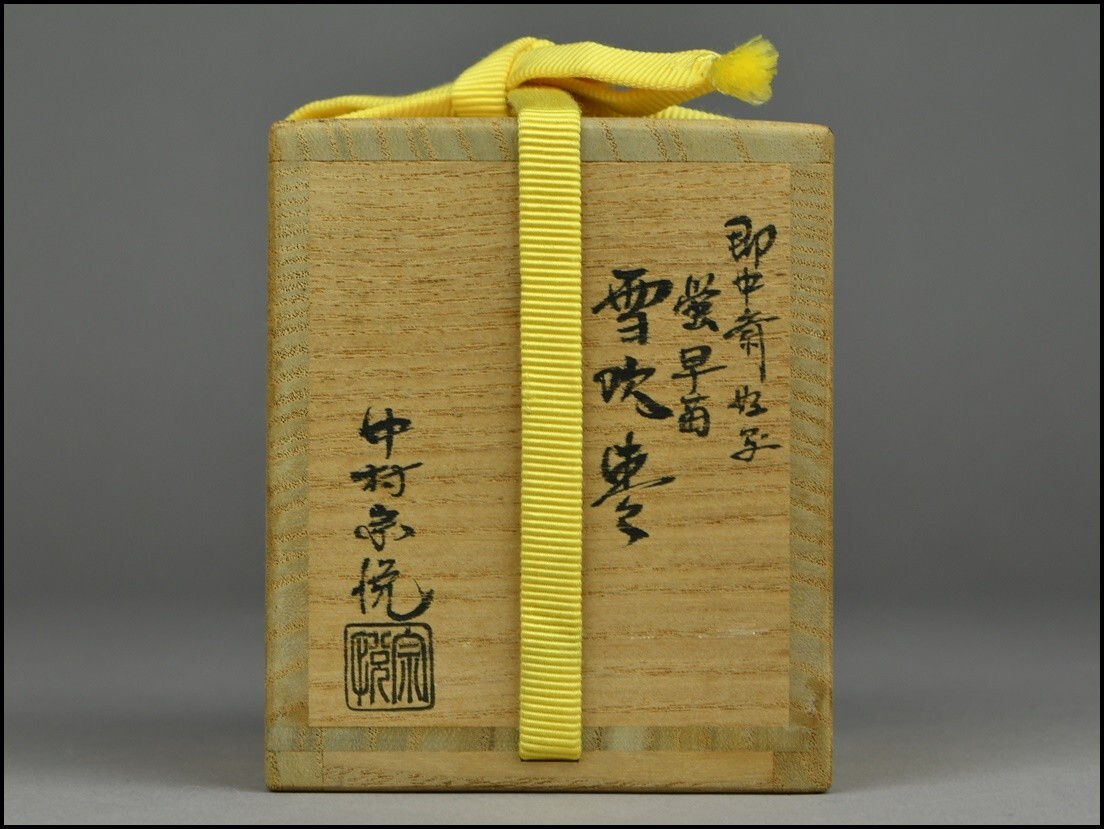 即中斎好写
螢早苗
雪吹棗
中村宗悦
宗悦